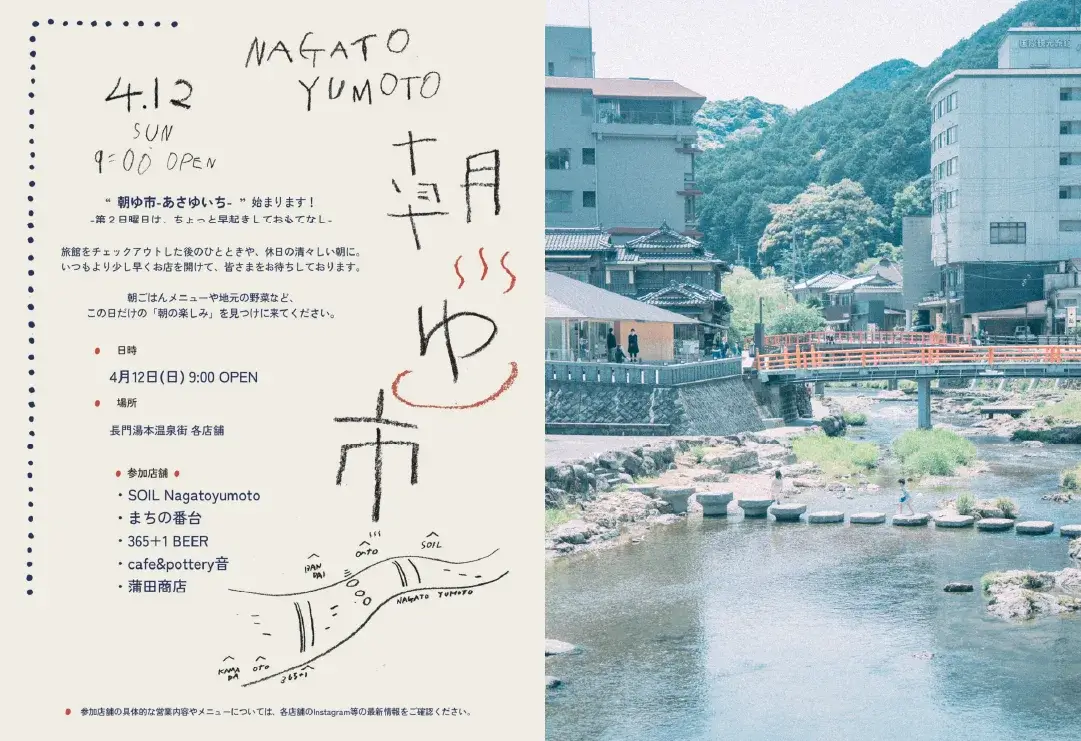 NAGATO
YUMOTO
4.12
SUN
9:00 OPEN
朝ゆ市
“ 朝ゆ市-あさゆいち- ” 始まります！
-第２日曜日は、ちょっと早起きしておもてなし-
旅館をチェックアウトした後のひとときや、休日の清々しい朝に。
いつもより少し早くお店を開けて、皆さまをお待ちしております。
朝ごはんメニューや地元の野菜など、
この日だけの「朝の楽しみ」を見つけに来てください。
日時
4月12日(日) 9:00 OPEN
場所
長門湯本温泉街 各店舗
参加店舗
・SOIL Nagatoyumoto
・まちの番台
・365＋1 BEER
・cafe&pottery音
・蒲田商店
SOIL
BAN
DAI
NAGATO YUMOTO
KAMA
DA
OTO
365+1
参加店舗の具体的な営業内容やメニューについては、各店舗のInstagram等の最新情報をご確認ください。